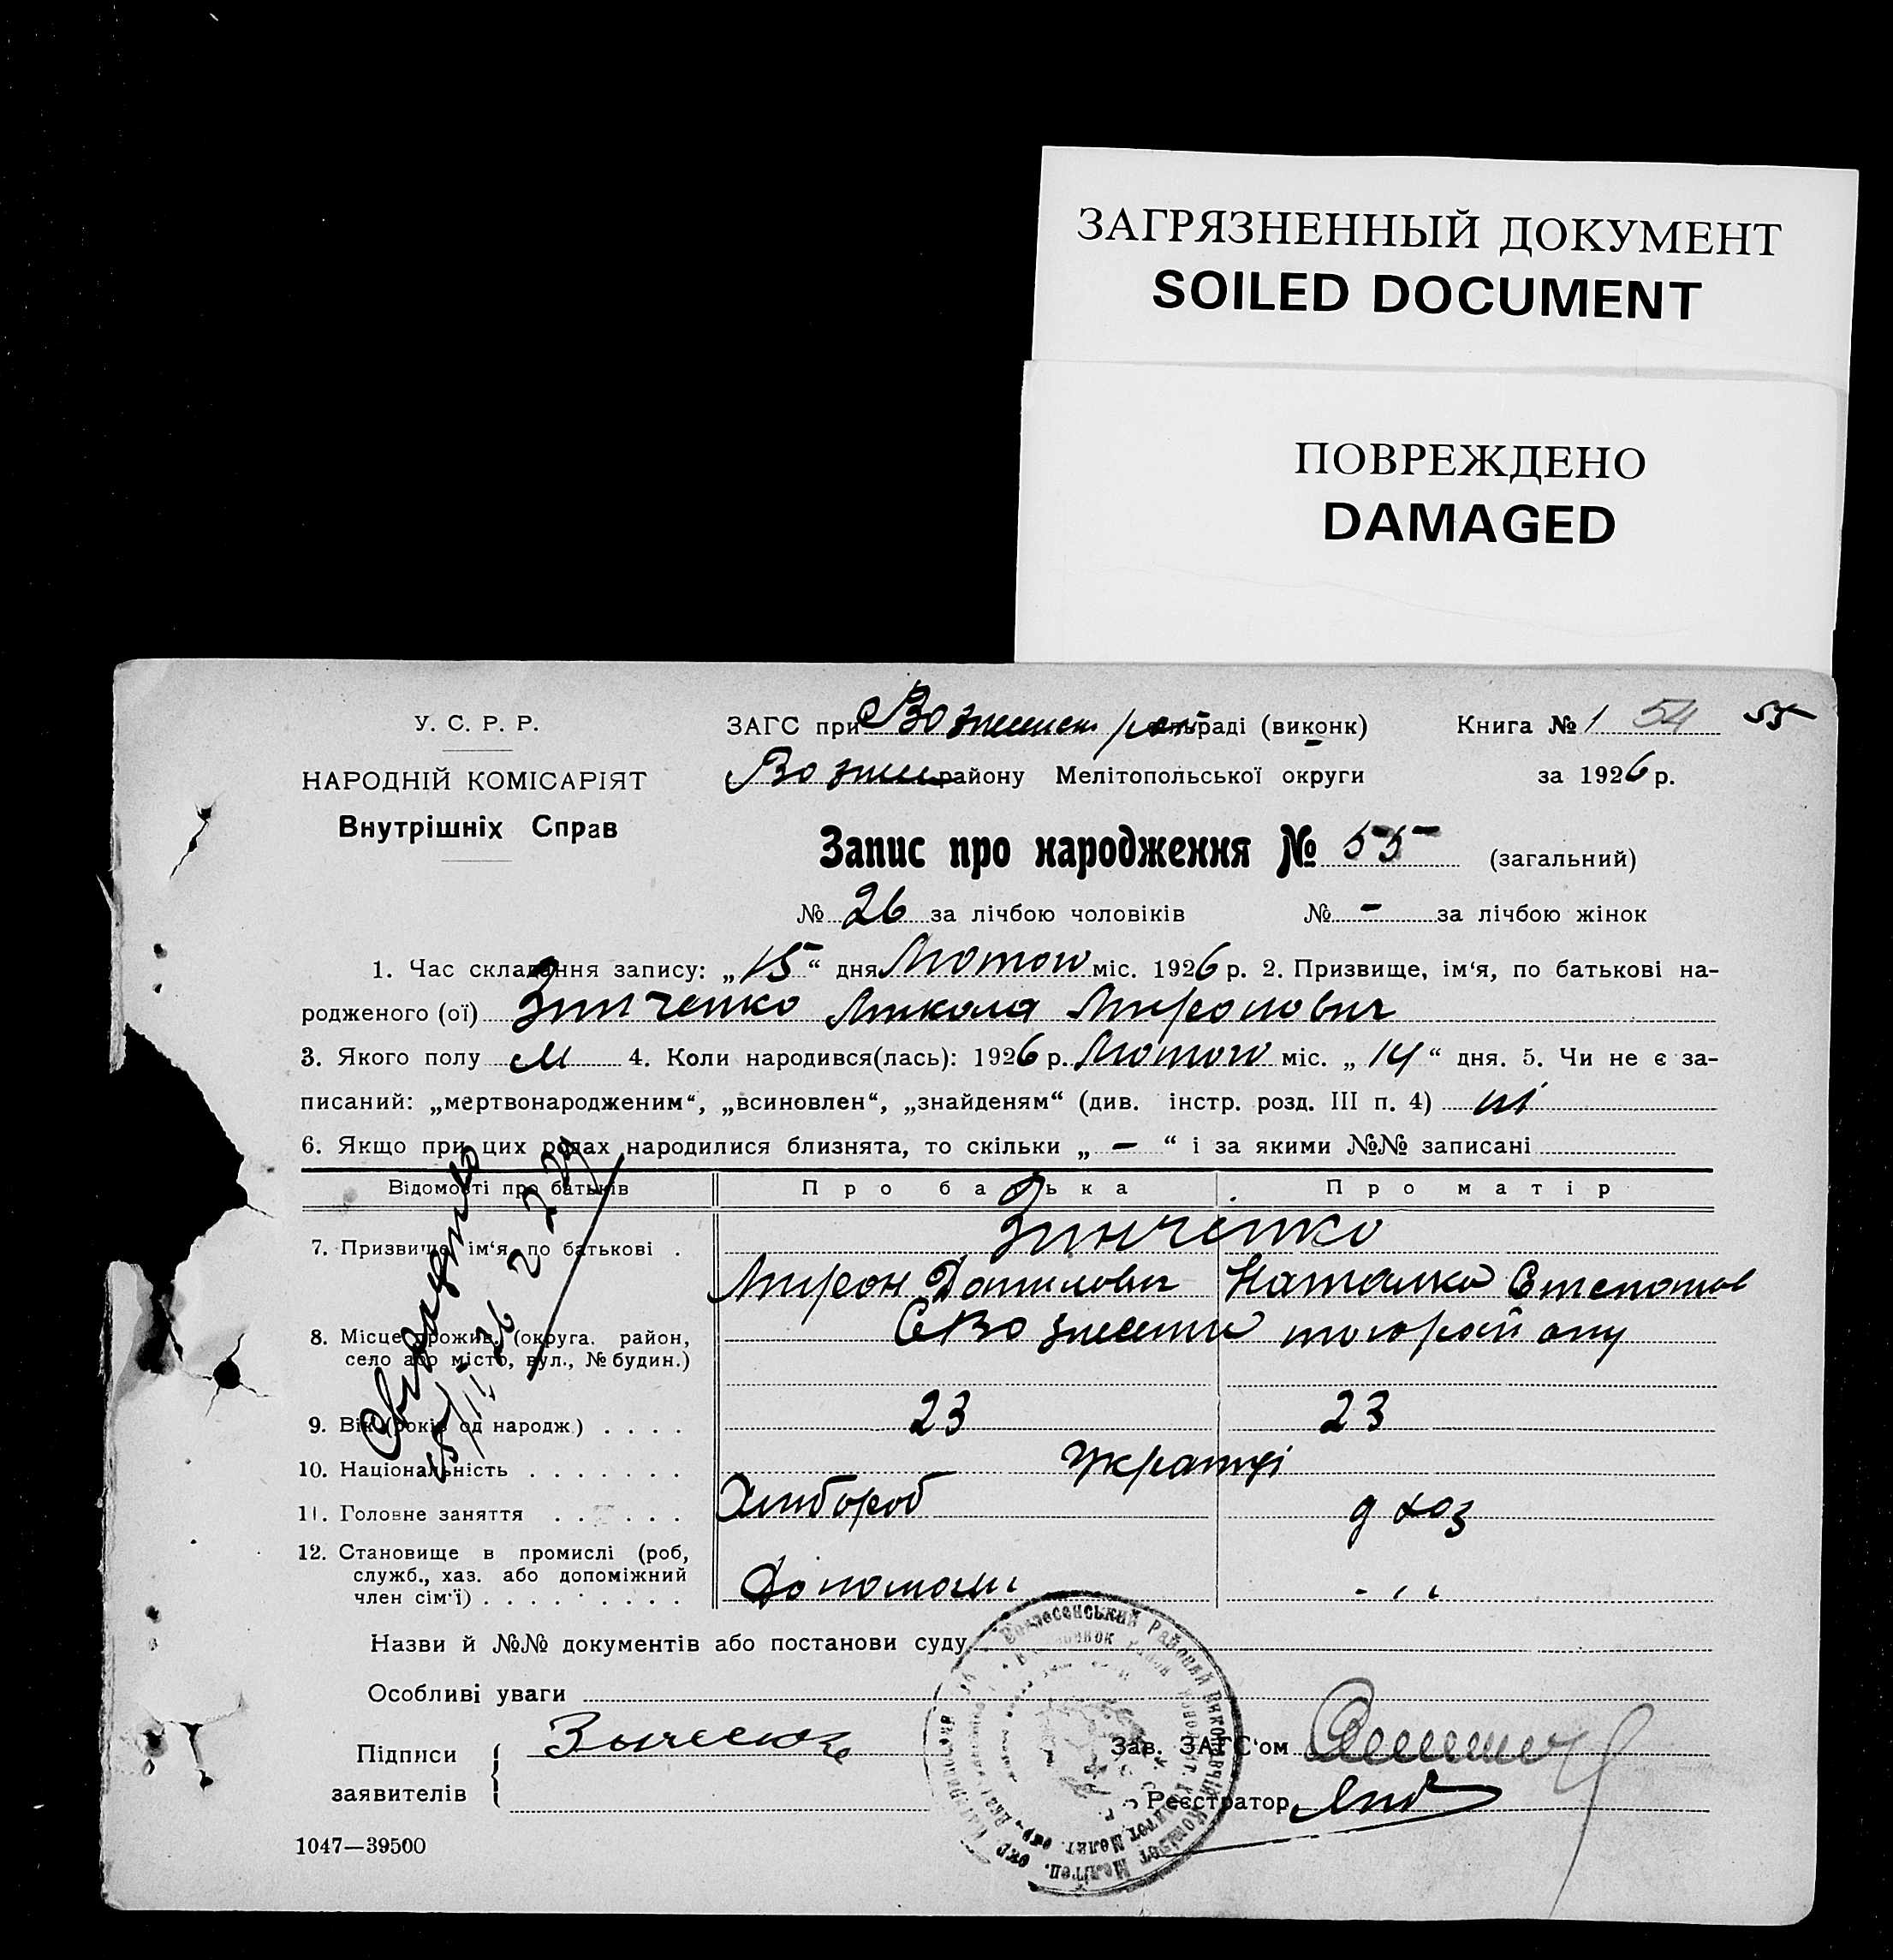 ЗАГРЯЗНЕННЫЙ ДОКУМЕНТ
SOILED DOCUMENT
ПОВРЕЖДЕНО
DAMAGED
У. С. Р. Р.
НАРОДНІЙ КОМІСАРІЯТ
Внутрішніх Справ
ЗАГС при раді (виконк)
району Мелітопольської округи
Книга № 1 54 55
за 1926 р.
Запис про народження № 55 (загальний)
№ 26 за лічбою чоловіків № - за лічбою жінок
1. Час складання запису: „15“ дня Лютого міс. 1926 р. 2. Призвище, ім‘я, по батькові на-
родженого (ої) Зинченко Микола Миронович
3. Якого полу М 4. Коли народився(лась): 1926 р. Лютого міс. „14“ дня. 5. Чи не є за-
писаний: „мертвонародженим“, „всиновлен“, „знайденям“ (див. інстр. розд. III п. 4) ні
6. Якщо при цих родах народилися близнята, то скільки „ - “ і за якими №№ записані
Відомості про батьків Про батька Про матір
7. Призвище, ім‘я, по батькові . Зинченко
Мирон Данилович Наталка Степанов
8. Місце прожив. (округа. район,
село або місто, вул., № будин.)
9. Вік (років од народж.) . . . . 23 23
10. Національність . . . . . . . Українці
11. Головне заняття . . . . . . Хлибороб д хоз
12. Становище в промислі (роб,
служб., хаз. або допоміжний
член сім‘ї) . . . . . . . . .
Назви й №№ документів або постанови суду
Особливі уваги
Підписи
заявителів
Зав. ЗАГС‘ом
Реєстратор
1047—39500